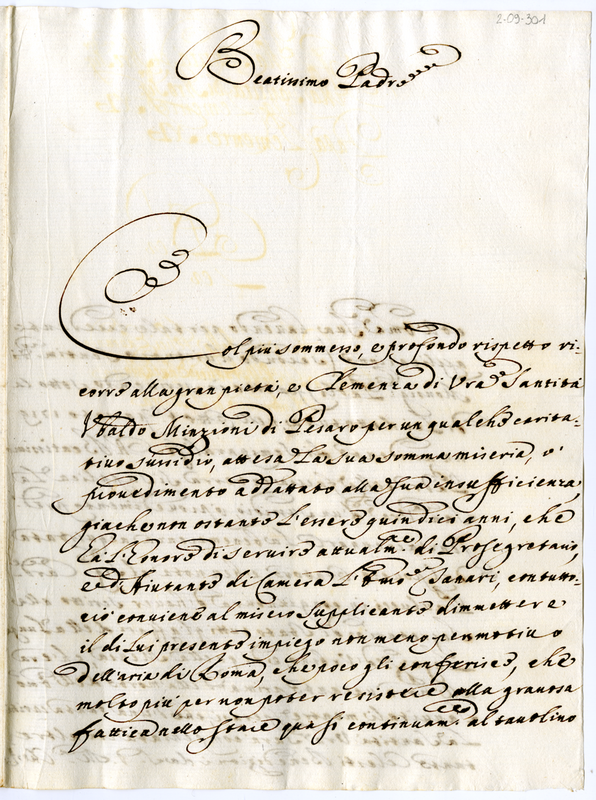 2-09-301
Beatissimo Padre
Col più sommesso, e profondo rispetto ri-
corre alla gran pietà, e Clemenza di Vra Santità
Vbaldo Minzioni di Pesaro per un qualche carita-
tiuo sussidio, attesa La sua somma miseria, o'
prouedimento addattato alla sua insufficienza,
giache non ostante L'essere quindici anni, che
hà L'onore di seruire attualm.e di Prosegretario,
ed Aiutante di Camera L'Emo Tanari, contutto-
ciò conuiene al misero supplicante dimetter e
il di Lui presente impiego non meno per motiuo
dell'aria di Roma, che poco gli conferisce, che
molto più per non poter resistere alla grauosa
fattica nello stare quasi continuam.e al tauolino